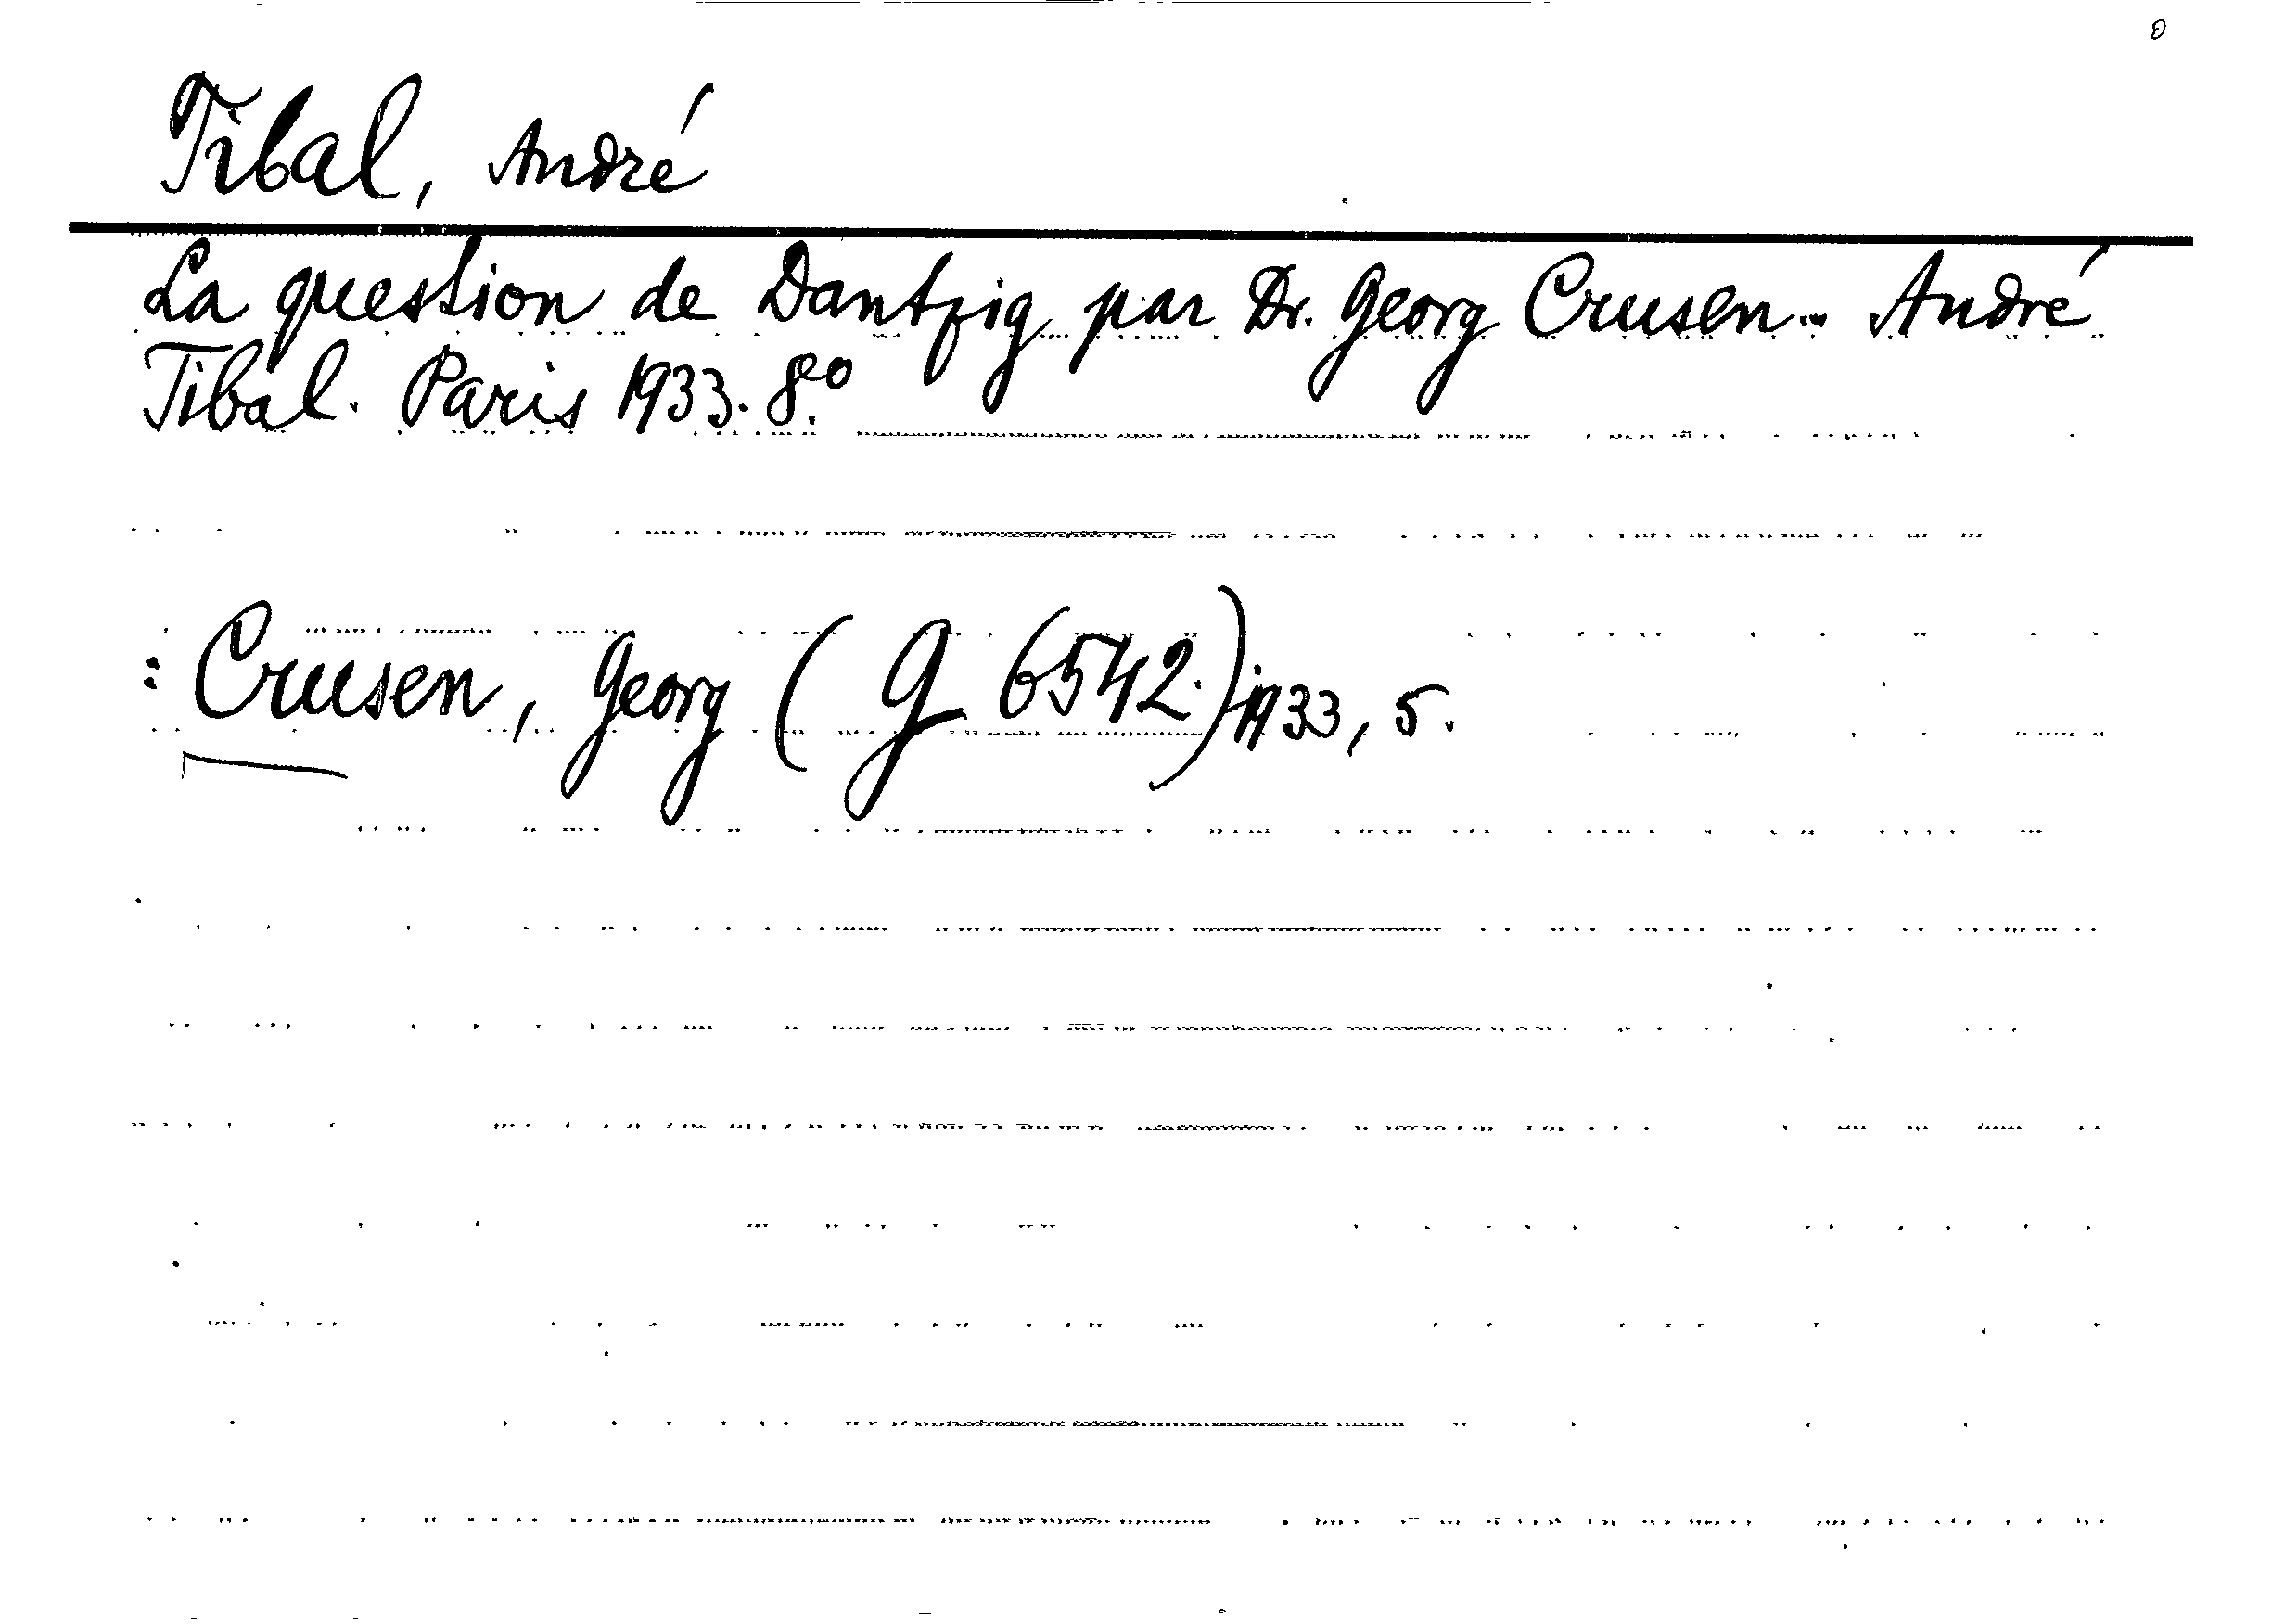 Tibal, André
La question de Dantzig par Dr. Georg Crusen.- André
Tibal. Paris 1933. 8.º
: Crusen, Georg (G 6542.) 1933, 5.